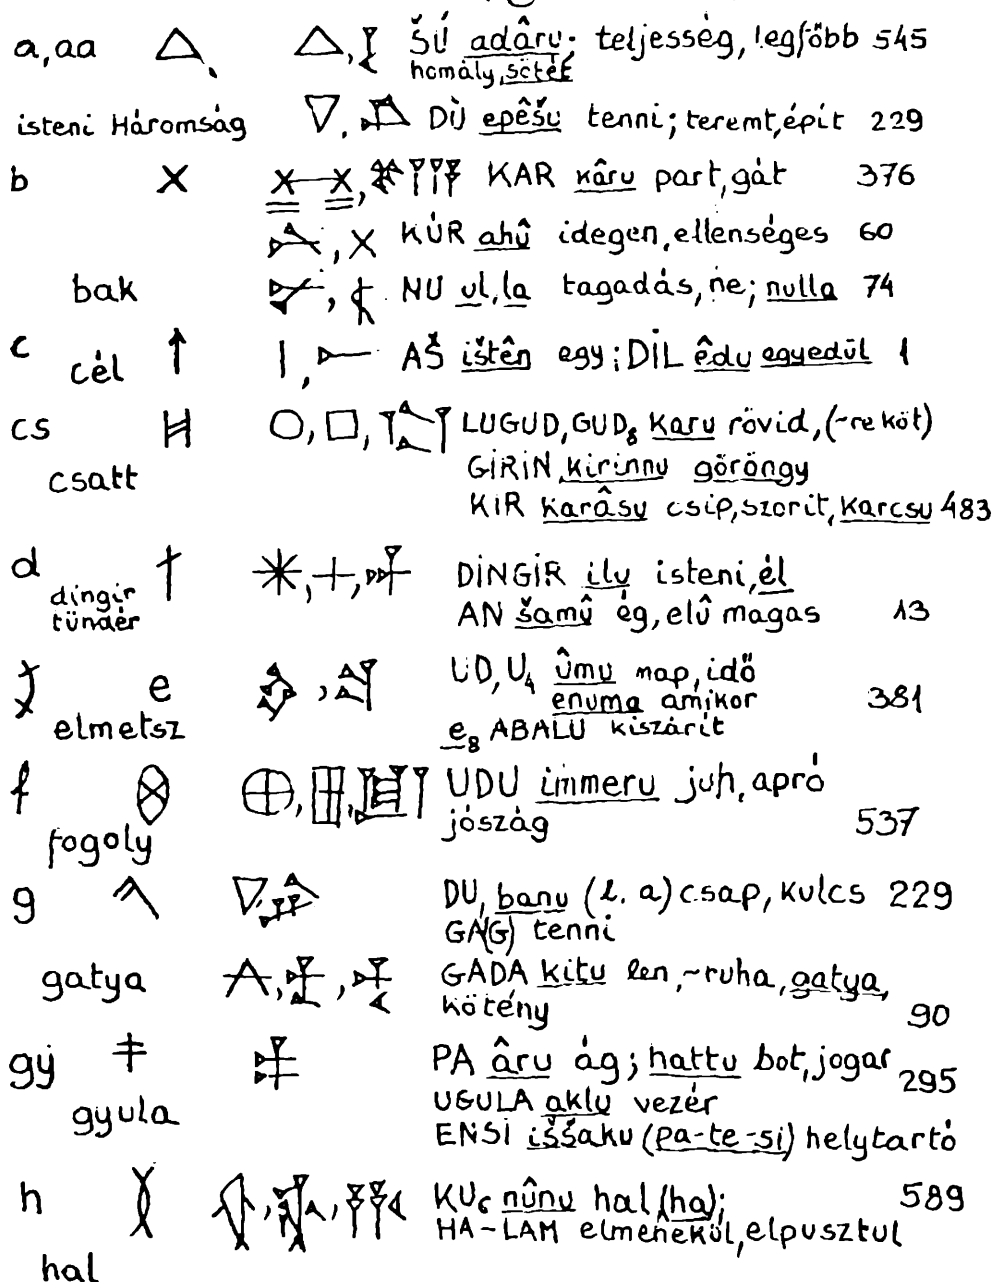 a, aa ŠÚ adâru; teljesség, legfőbb 545
homály, sötét
isteni Háromság DÙ epêšu tenni; teremt, épít 229
b KAR kâru part, gát 376
KÚR ahû idegen, ellenséges 60
bak NU ul, la tagadás, ne; nulla 74
c
cél AŠ ištên egy; DIL êdu egyedül 1
cs LUGUD, GUD₈ karu rövid, (~re köt)
csatt GIRIN, kirinnu göröngy
KIR karâsu csip, szorit, karcsu 483
d DINGIR ilu isteni, él
dingir
tündér AN šamû ég, elû magas 13
e UD, U₄ ûmu nap, idő
enuma amikor 381
elmetsz e₈ ABALU kiszárít
f UDU immeru juh, apró
fogoly jószág 537
g DU, banu (l. a) csap, kulcs 229
GA(G) tenni
gatya GADA kitu len, ~ruha, gatya,
kötény 90
gy PA âru ág; hattu bot, jogar 295
gyula UGULA aklu vezér
ENSI iššaku (pa-te-si) helytartó
h nûnu hal (ha); 589
HA-LAM elmenekül, elpusztul
hal